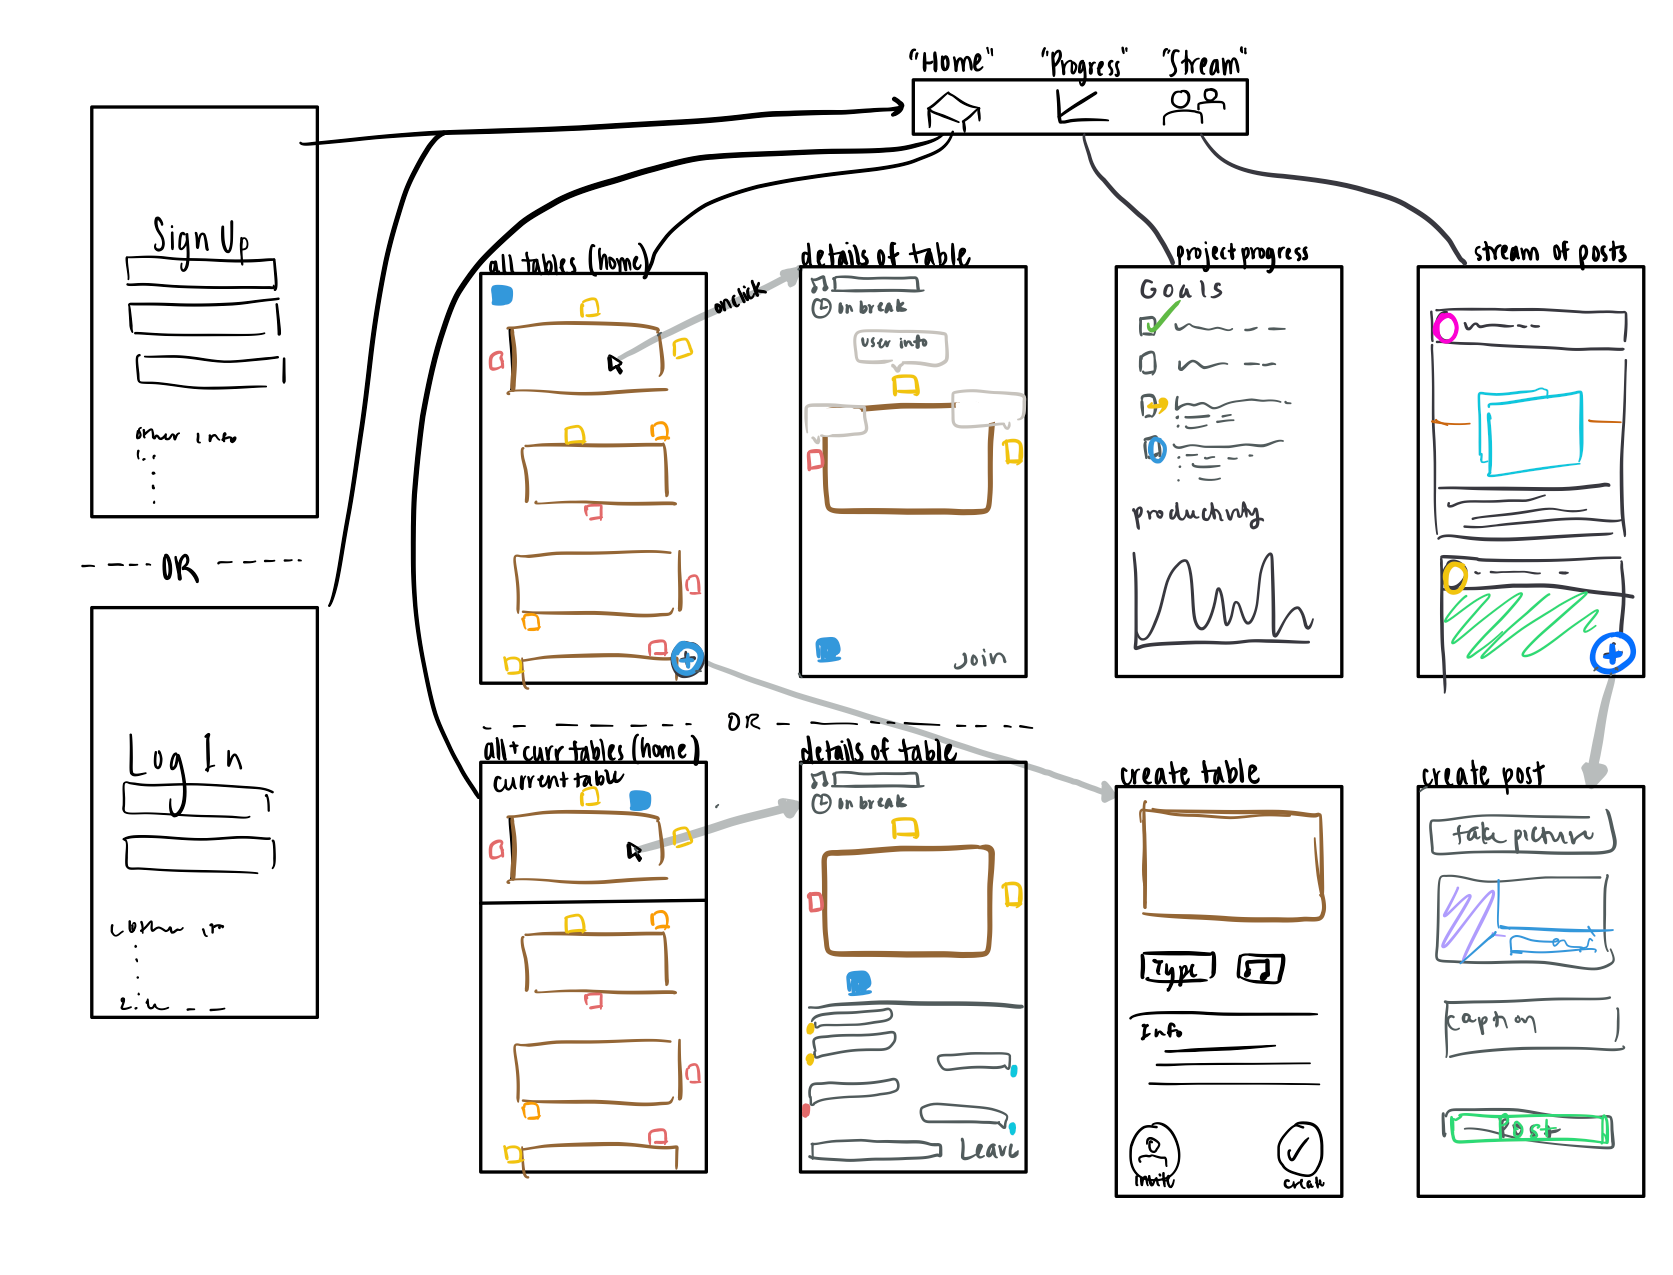 "Home" "Progress" "Stream"
Sign Up
other info
OR
Log In
all tables (home)
onclick
details of table
on break
user info
Join
project progress
Goals
productivity
stream of posts
OR
all + curr tables (home)
current table
details of table
on break
Leave
create table
Type
Info
invite
create
create post
take picture
caption
Post